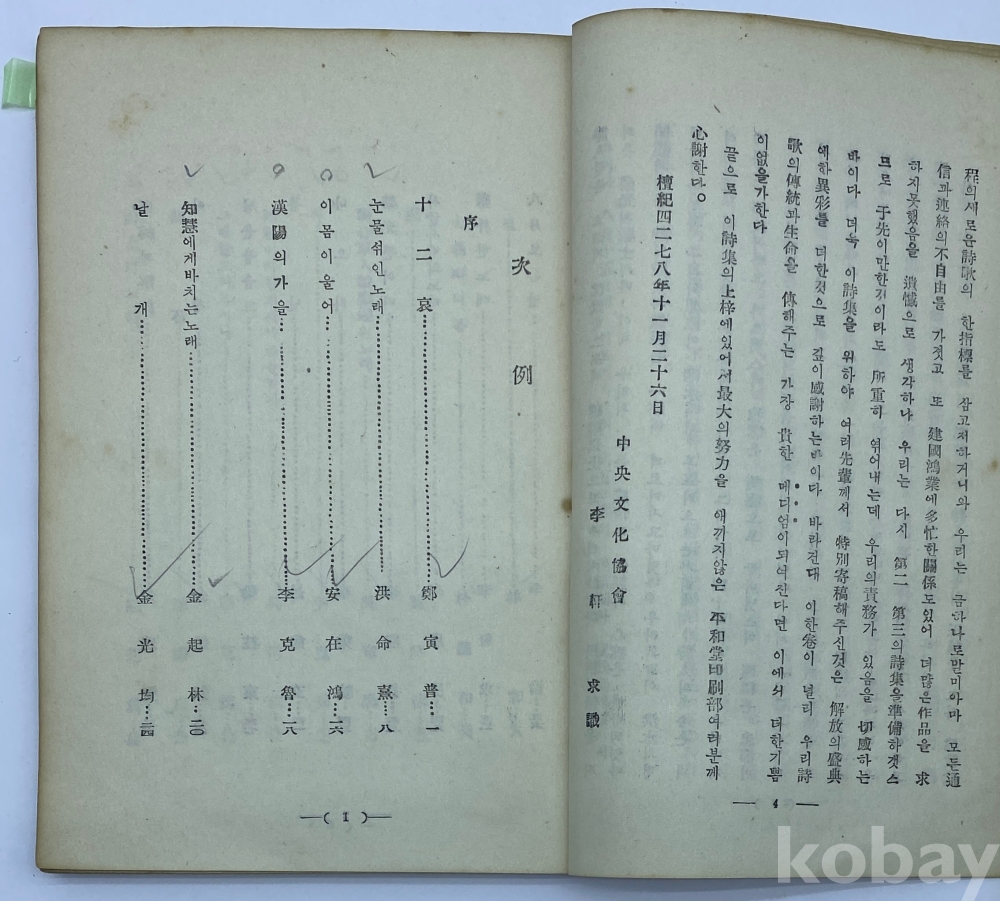 程의새로운詩歌의 한指標를 삼고저하거니와 우리는 금하나로말미아마 모든通
信과連絡의不自由를 가젓고 또 建國鴻業에多忙한關係도있어 더많은作品을 求
하지못했음을 遺憾으로 생각하나 우리는 다시 第二 第三의詩集을準備하겟스
므로 于先이만한것이라도 所重히 엮어내는데 우리의責務가 있음을 切感하는
바이다 더욱 이詩集을 위하야 여러先輩께서 特別寄稿해주신것은 解放의盛典
에한異彩를 더한것으로 깊이感謝하는바이다 바라건대 이한卷이 널리 우리詩
歌의傳統과生命을 傳해주는 가장 貴한 메디엄이되여진다면 이에서 더한기쁨
이없을가한다
끝으로 이詩集의上梓에있어서最大의努力을 애끼지않은 平和堂印刷部여러분께
心謝한다。
檀紀四二七八年十一月二十六日
中央文化協會
李軒求識
— 4 —
次例
序
十二哀……鄭寅普…一
눈물쉬인노래……洪命熹…八
이몸이울어……安在鴻…一六
漢陽의가을……李克魯…一八
知慧에게바치는노래……金起林…二〇
날개……金光均…二四
—( I )—
kobay